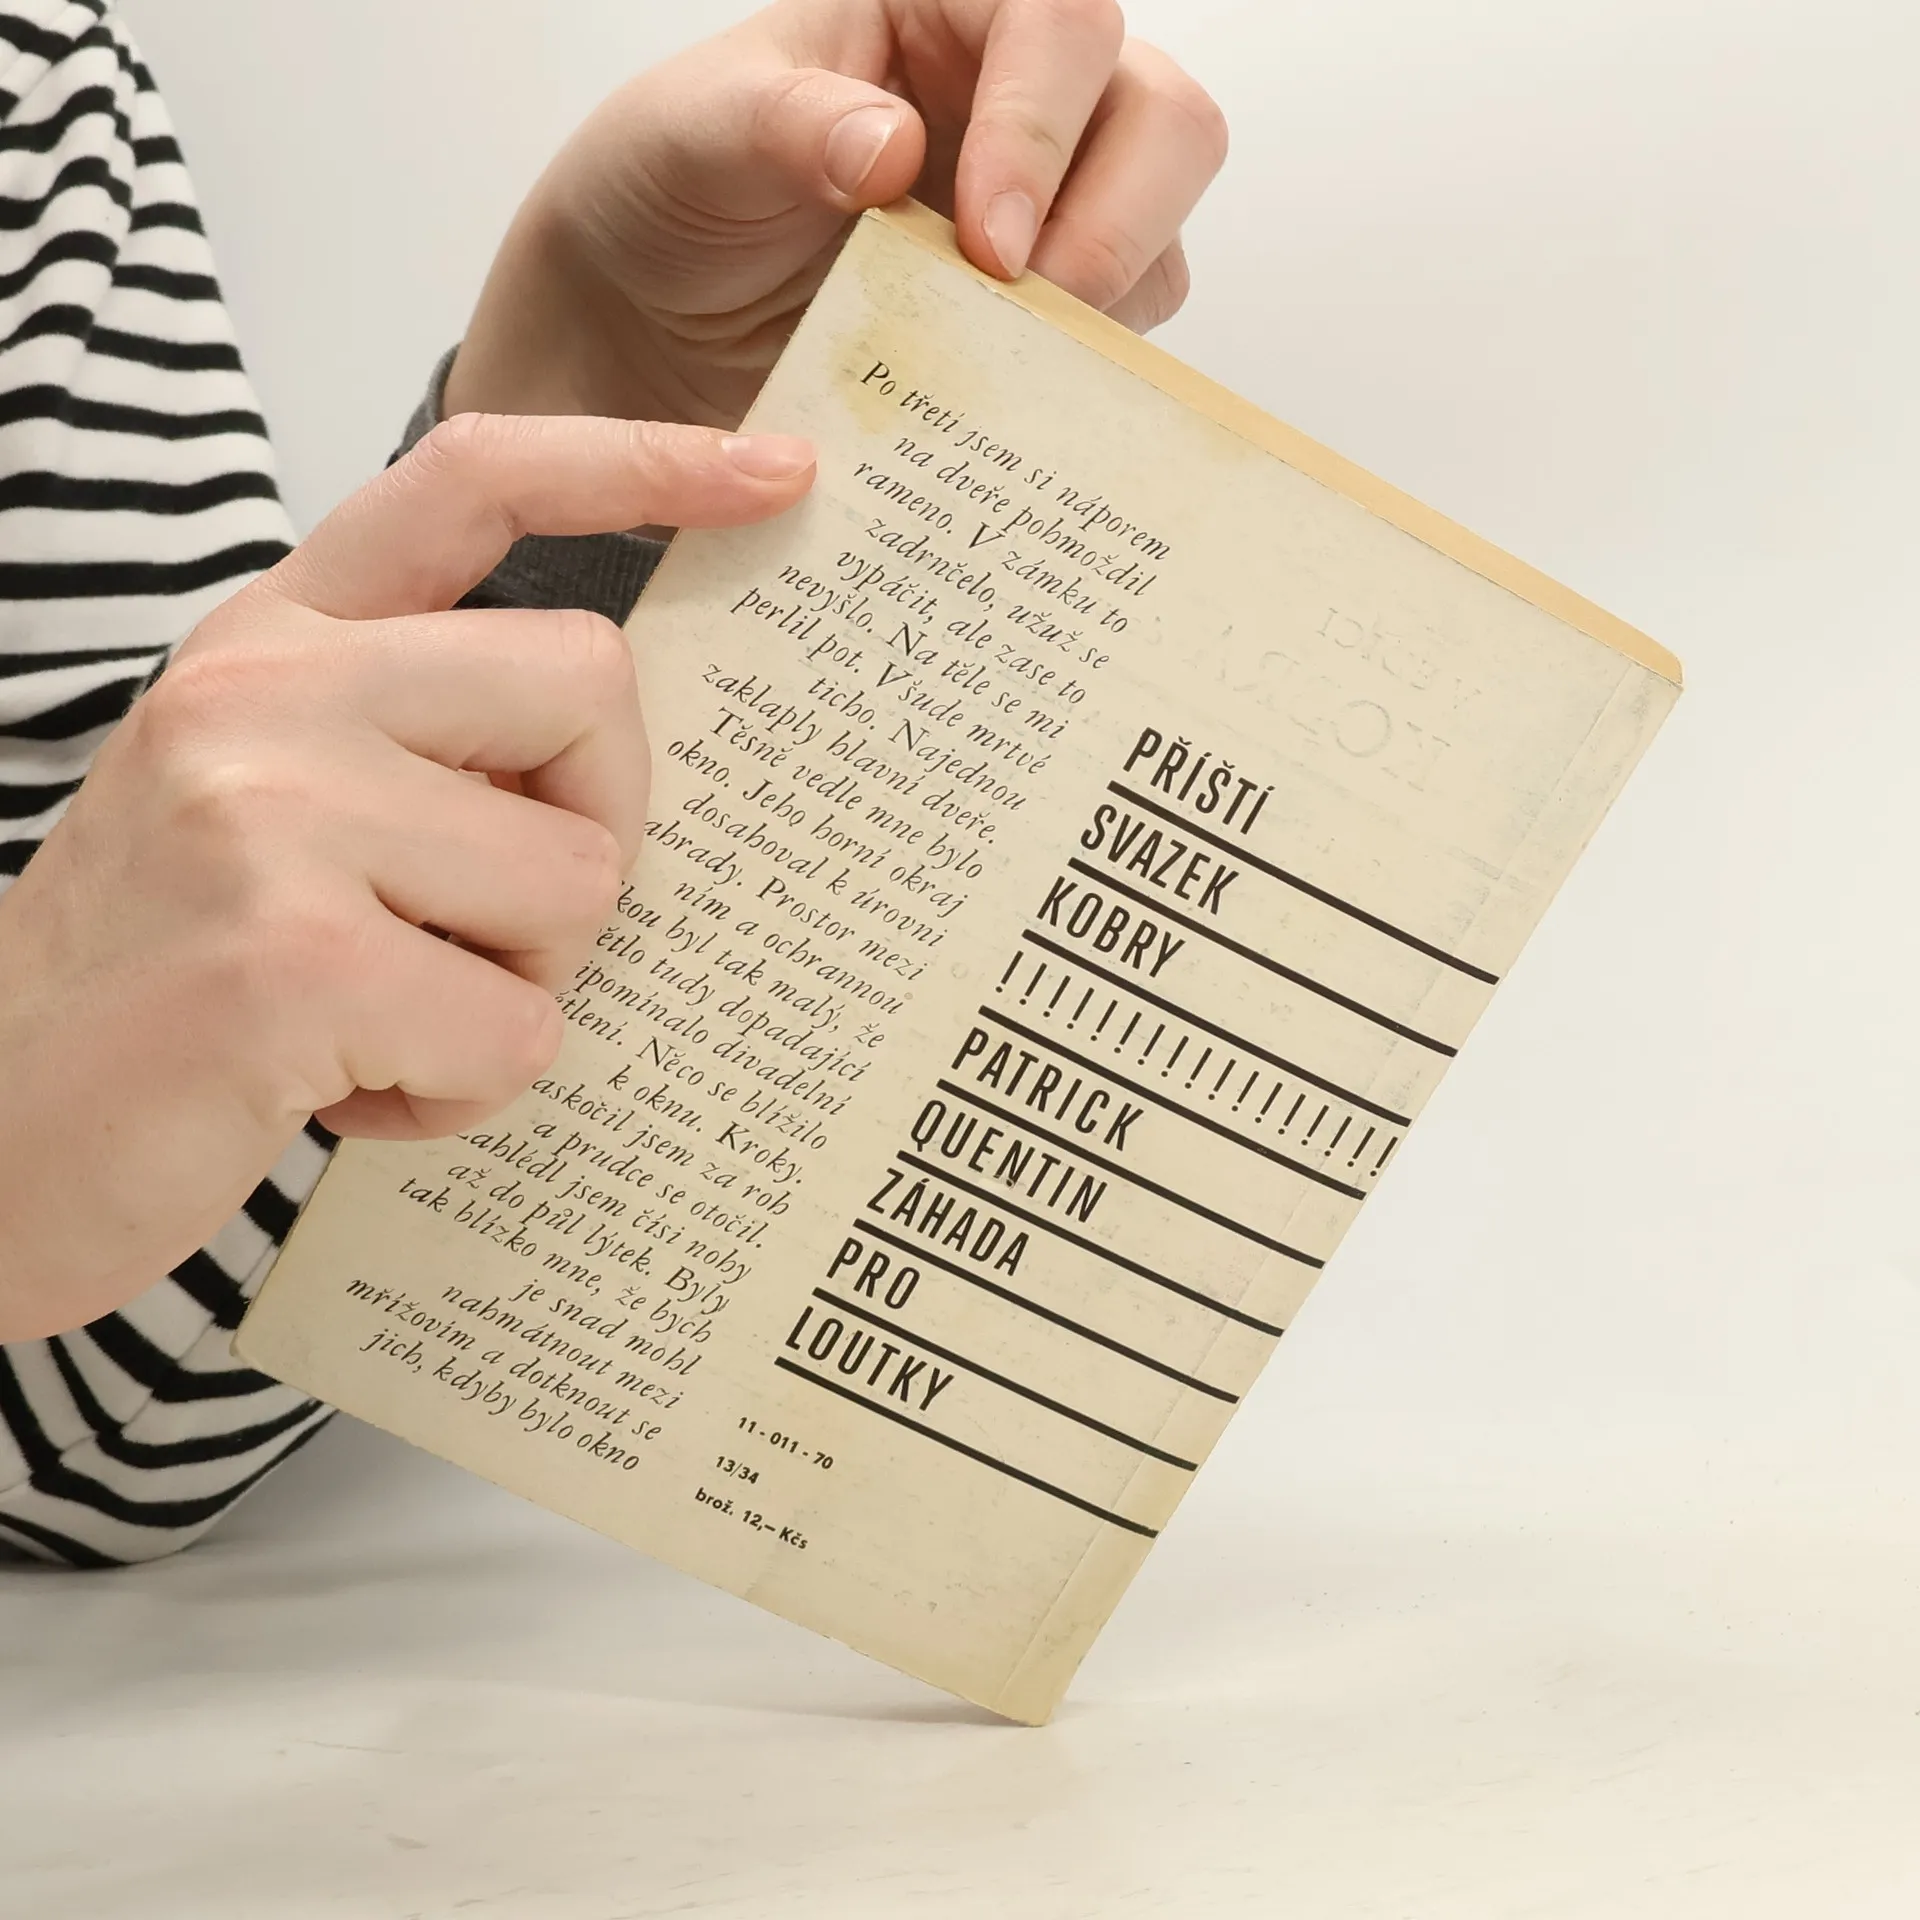 Po třetí jsem si náporem
na dveře pohmoždil
rameno. V zámku to
zadrnčelo, užuž se
vypáčit, ale zase to
nevyšlo. Na těle se mi
perlil pot. Všude mrtvé
ticho. Najednou
zaklaply hlavní dveře.
Těsně vedle mne bylo
okno. Jeho horní okraj
dosahoval k úrovni
ahrady. Prostor mezi
ním a ochrannou
kou byl tak malý, že
ětlo tudy dopadající
ipomínalo divadelní
ětlení. Něco se blížilo
k oknu. Kroky.
askočil jsem za roh
a prudce se otočil.
Zahlédl jsem čísi nohy
až do půl lýtek. Byly
tak blízko mne, že bych
je snad mohl
nahmátnout mezi
mřížovím a dotknout se
jich, kdyby bylo okno
PŘÍŠTÍ
SVAZEK
KOBRY
!!!!!!!!!!!!!!!!!
PATRICK
QUENTIN
ZÁHADA
PRO
LOUTKY
11 - 011 - 70
13/34
brož. 12,– Kčs